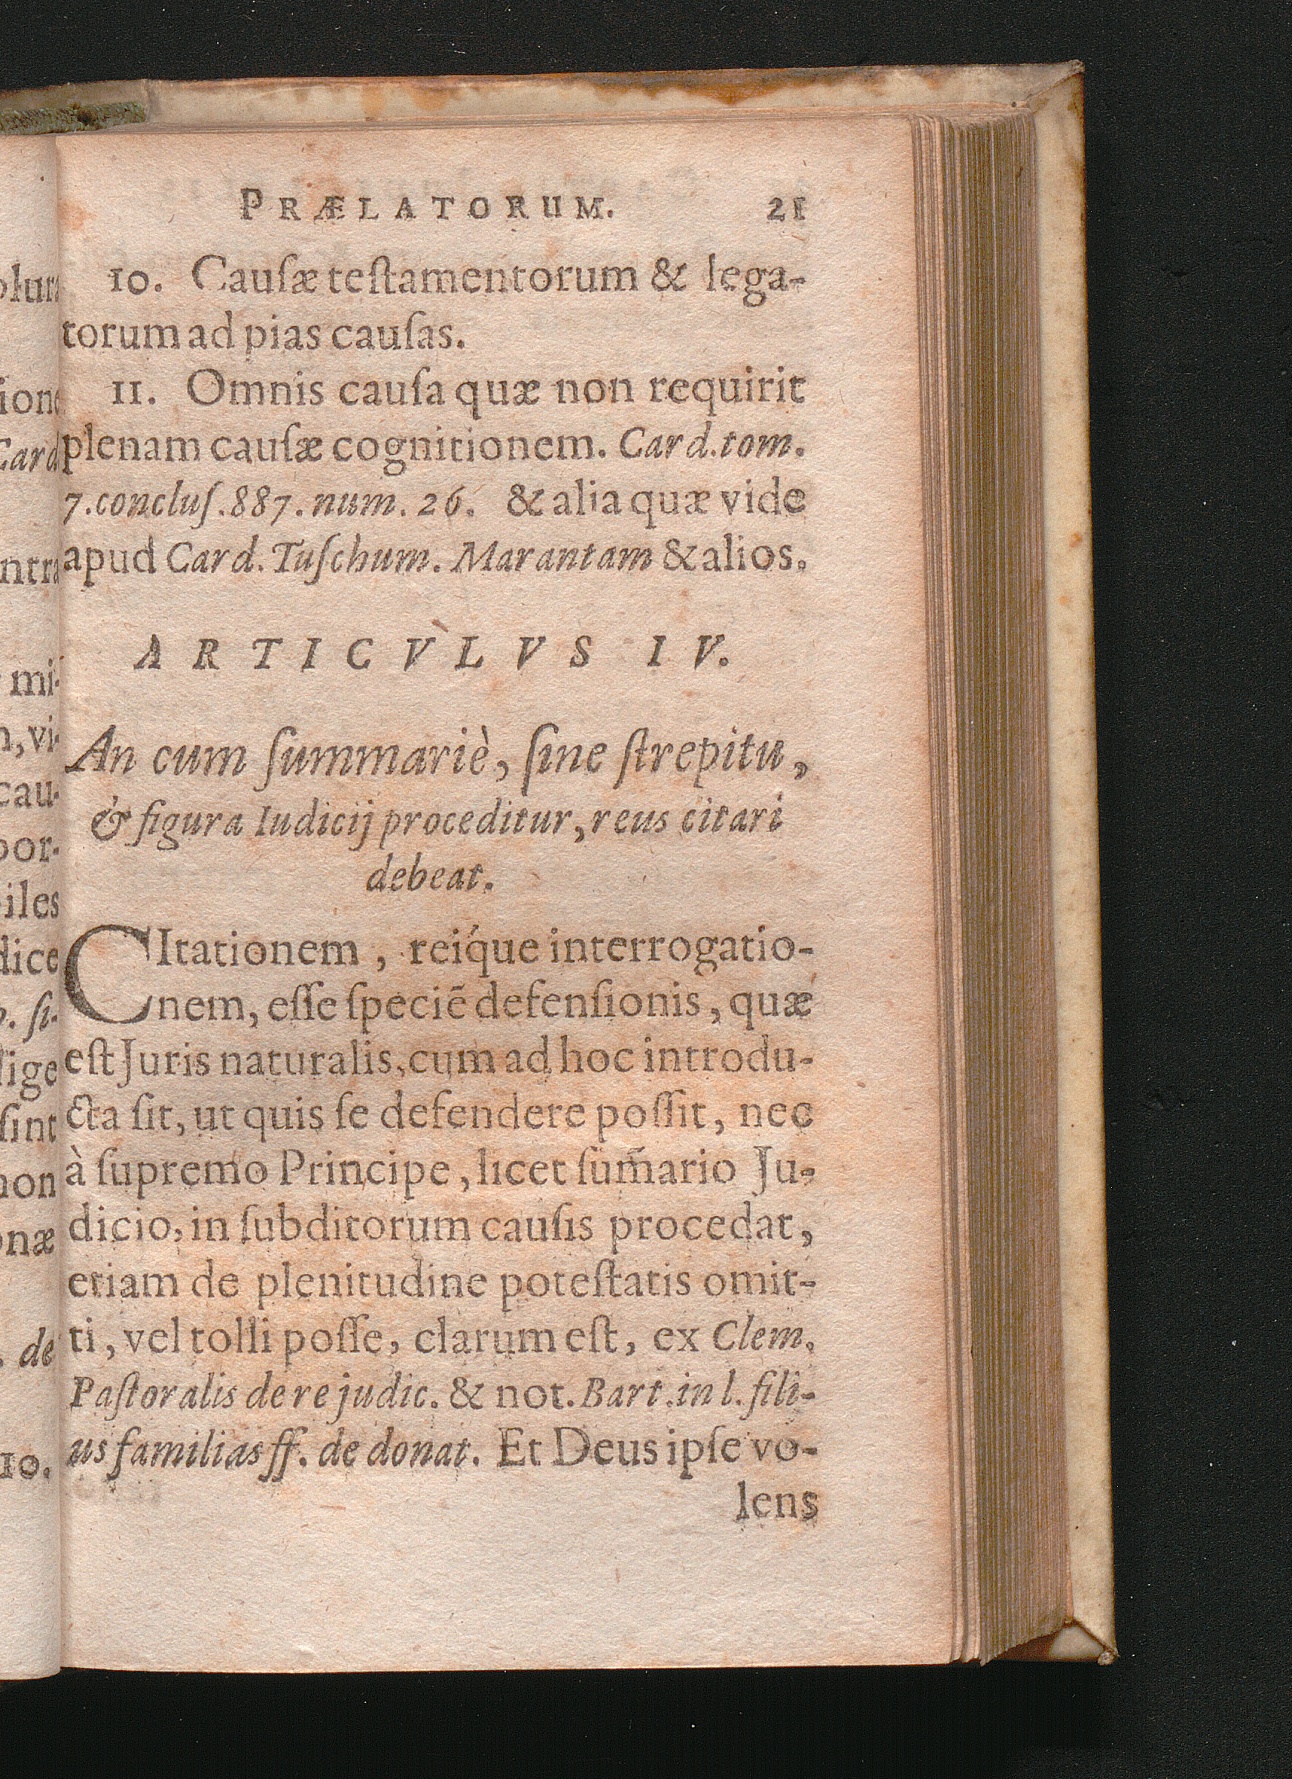 PRÆLATORUM. 21
10. Cauſæ teſtamentorum & lega-
torum ad pias cauſas.
11. Omnis cauſa quæ non requirit
plenam cauſæ cognitionem. Card. tom.
7. concluſ. 887. num. 26. & alia quæ vide
apud Card. Tuſchum. Marantam & alios.
ARTICVLVS IV.
An cum ſummariè, ſine ſtrepitu,
& figura Iudicij proceditur, reus citari
debeat.
CItationem, reiq́ue interrogatio-
nem, eſſe ſpeciē defenſionis, quæ
eſt Juris naturalis, cum ad hoc introdu-
cta ſit, ut quis ſe defendere poſſit, nec
à ſupremo Principe, licet ſum̄ario Ju-
dicio, in ſubditorum cauſis procedat,
etiam de plenitudine poteſtatis omit-
ti, vel tolli poſſe, clarum eſt, ex Clem.
Paſtoralis de re judic. & not. Bart. in l. fili-
us familias ff. de donat. Et Deus ipſe vo-
lens